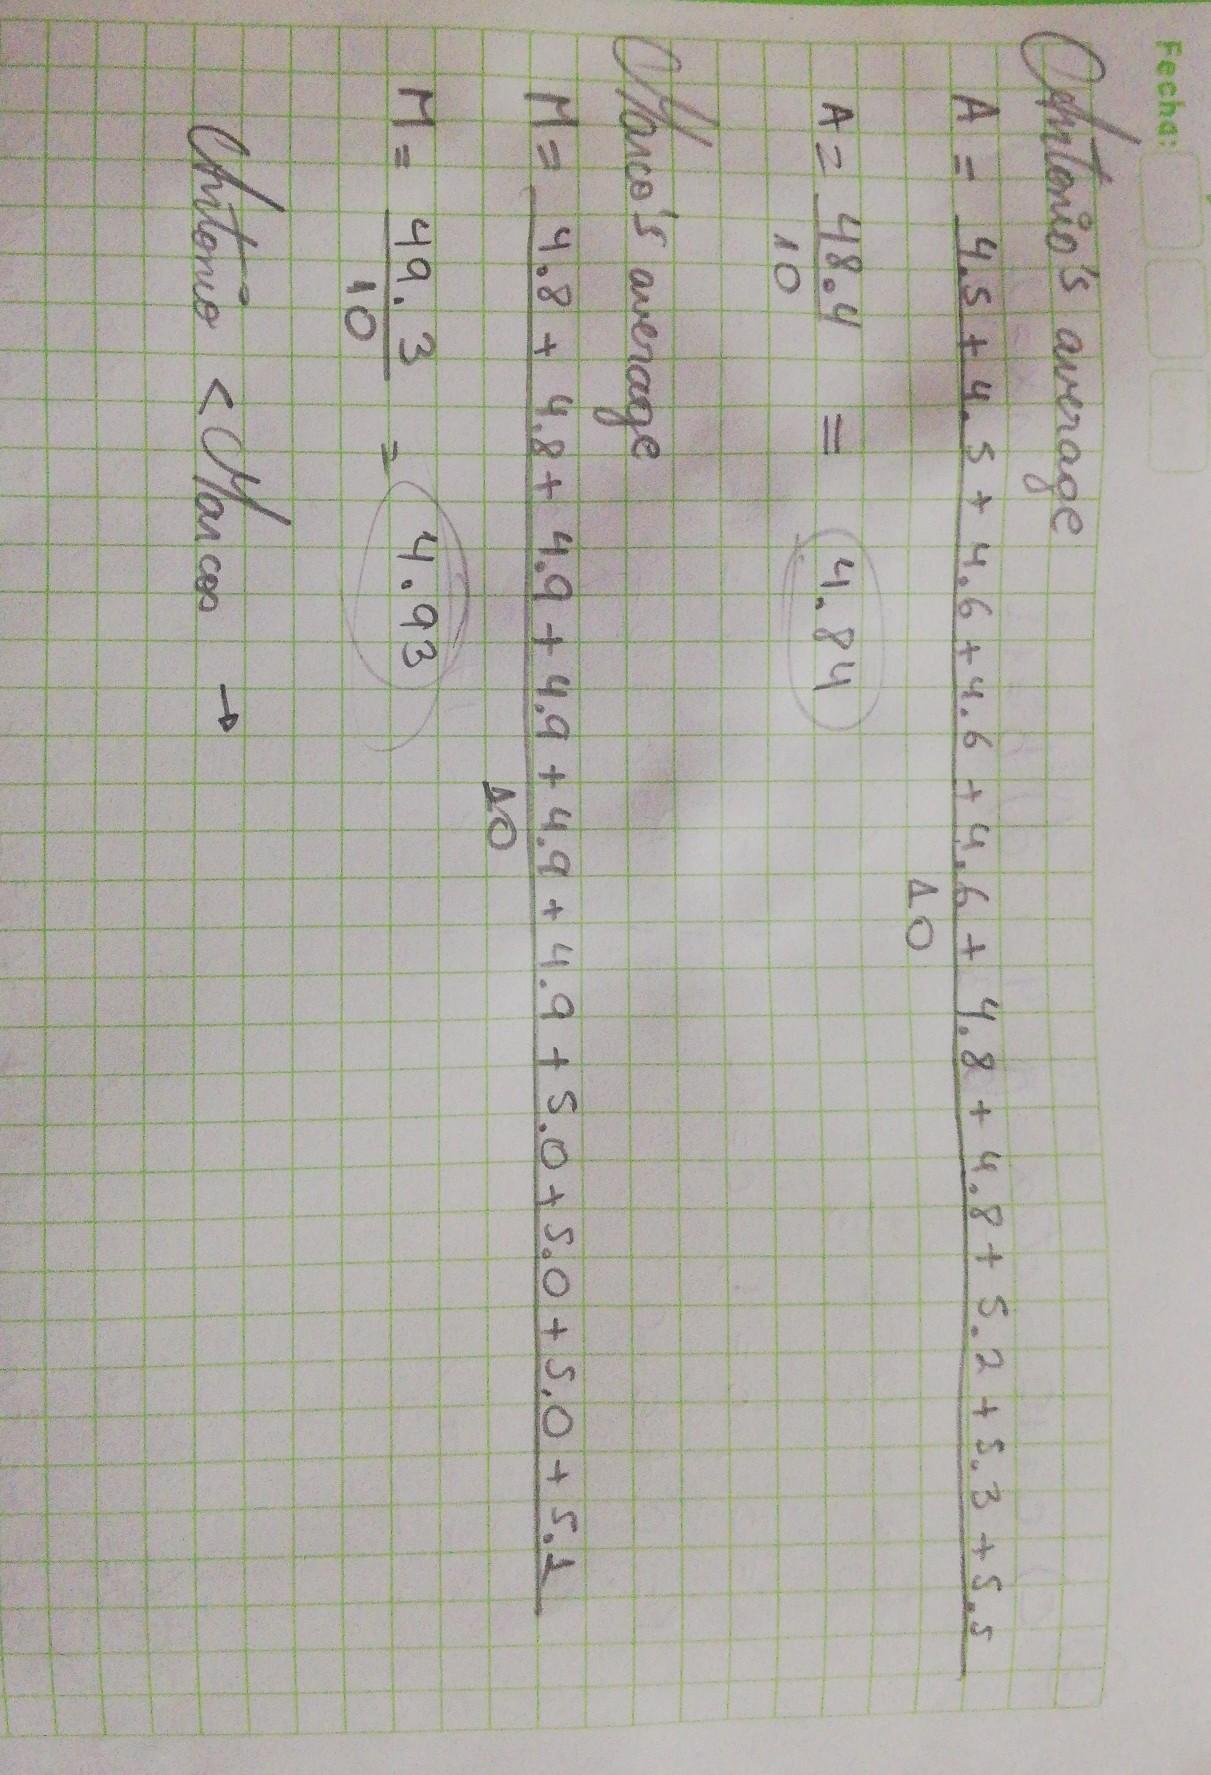 Fecha:
Antonio's average
A = 4.5 + 4.5 + 4.6 + 4.6 + 4.6 + 4.8 + 4.8 + 5.2 + 5.3 + 5.5
10
A = 48.4 = 4.84
10
Marco's average
M = 4.8 + 4.8 + 4.9 + 4.9 + 4.9 + 4.9 + 5.0 + 5.0 + 5.0 + 5.1
10
M = 49.3 = 4.93
10
Antonio < Marcos →